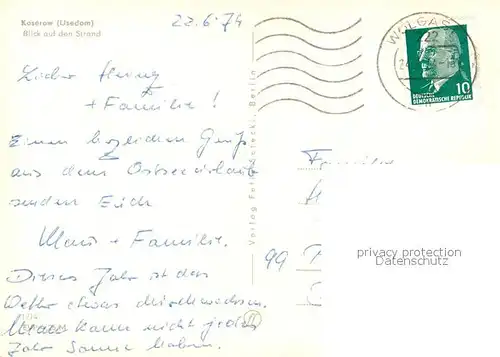 Koserow (Usedom)
Blick auf den Strand
22.6.74
WOLGAST
22
10
DEUTSCHE
DEMOKRATISCHE REPUBLIK
Lieber Heinz
+ Familie!
Einen herzlichen Gruß
aus dem Ostseeurlaub
senden Euch
+ Familie.
Dieses Jahr ist das
Wetter etwas durchwachsen.
Man kann nicht jedes
Jahr Sonne haben.
Familie
99
privacy protection
Datenschutz
Verlag Berlin